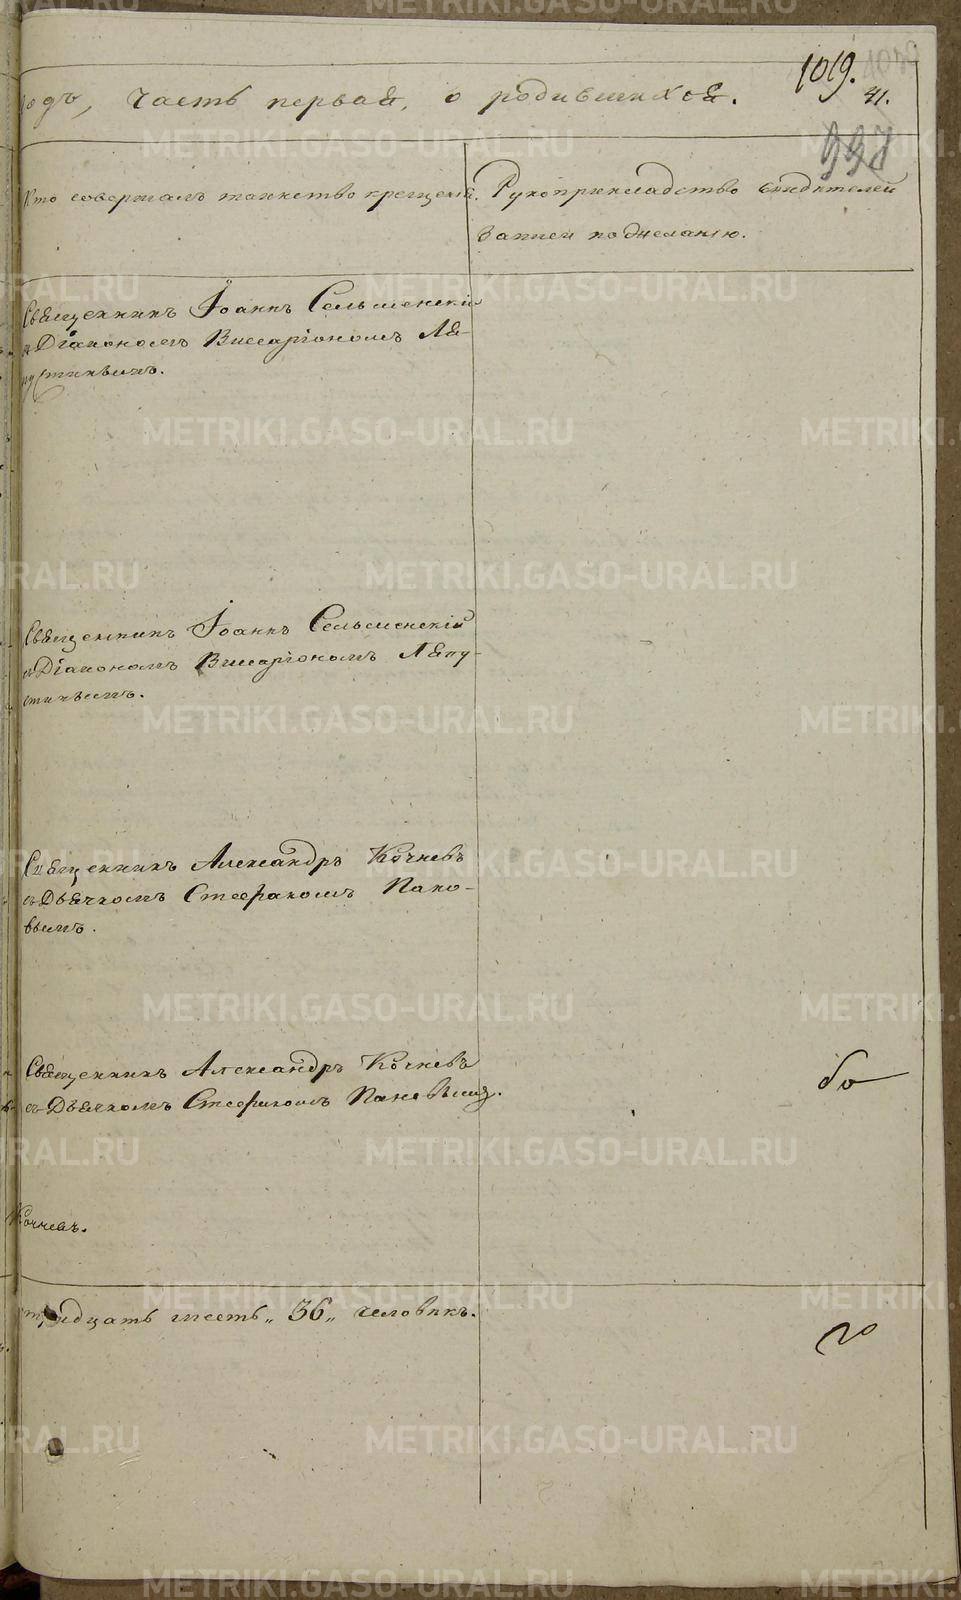 1019.
41.
997
годъ, часть первая, о родившихся.
Кто совершалъ таинство крещенія.
Рукоприкладство свидѣтелей
записи по желанію.
Священникъ Іоаннъ Сельменскій
съ Діакономъ Виссаріономъ Ля-
пустинымъ.
Священникъ Іоаннъ Сельменскій
съ Діакономъ Виссаріономъ Ляпу-
стинымъ.
Священникъ Александръ Кочневъ
съ Дьячкомъ Стефаномъ Пано-
вымъ.
Священникъ Александръ Кочневъ
съ Дьячкомъ Стефаномъ Пановымъ.
Кочневъ.
тридцать шесть „36„ человѣкъ.
METRIKI.GASO-URAL.RU